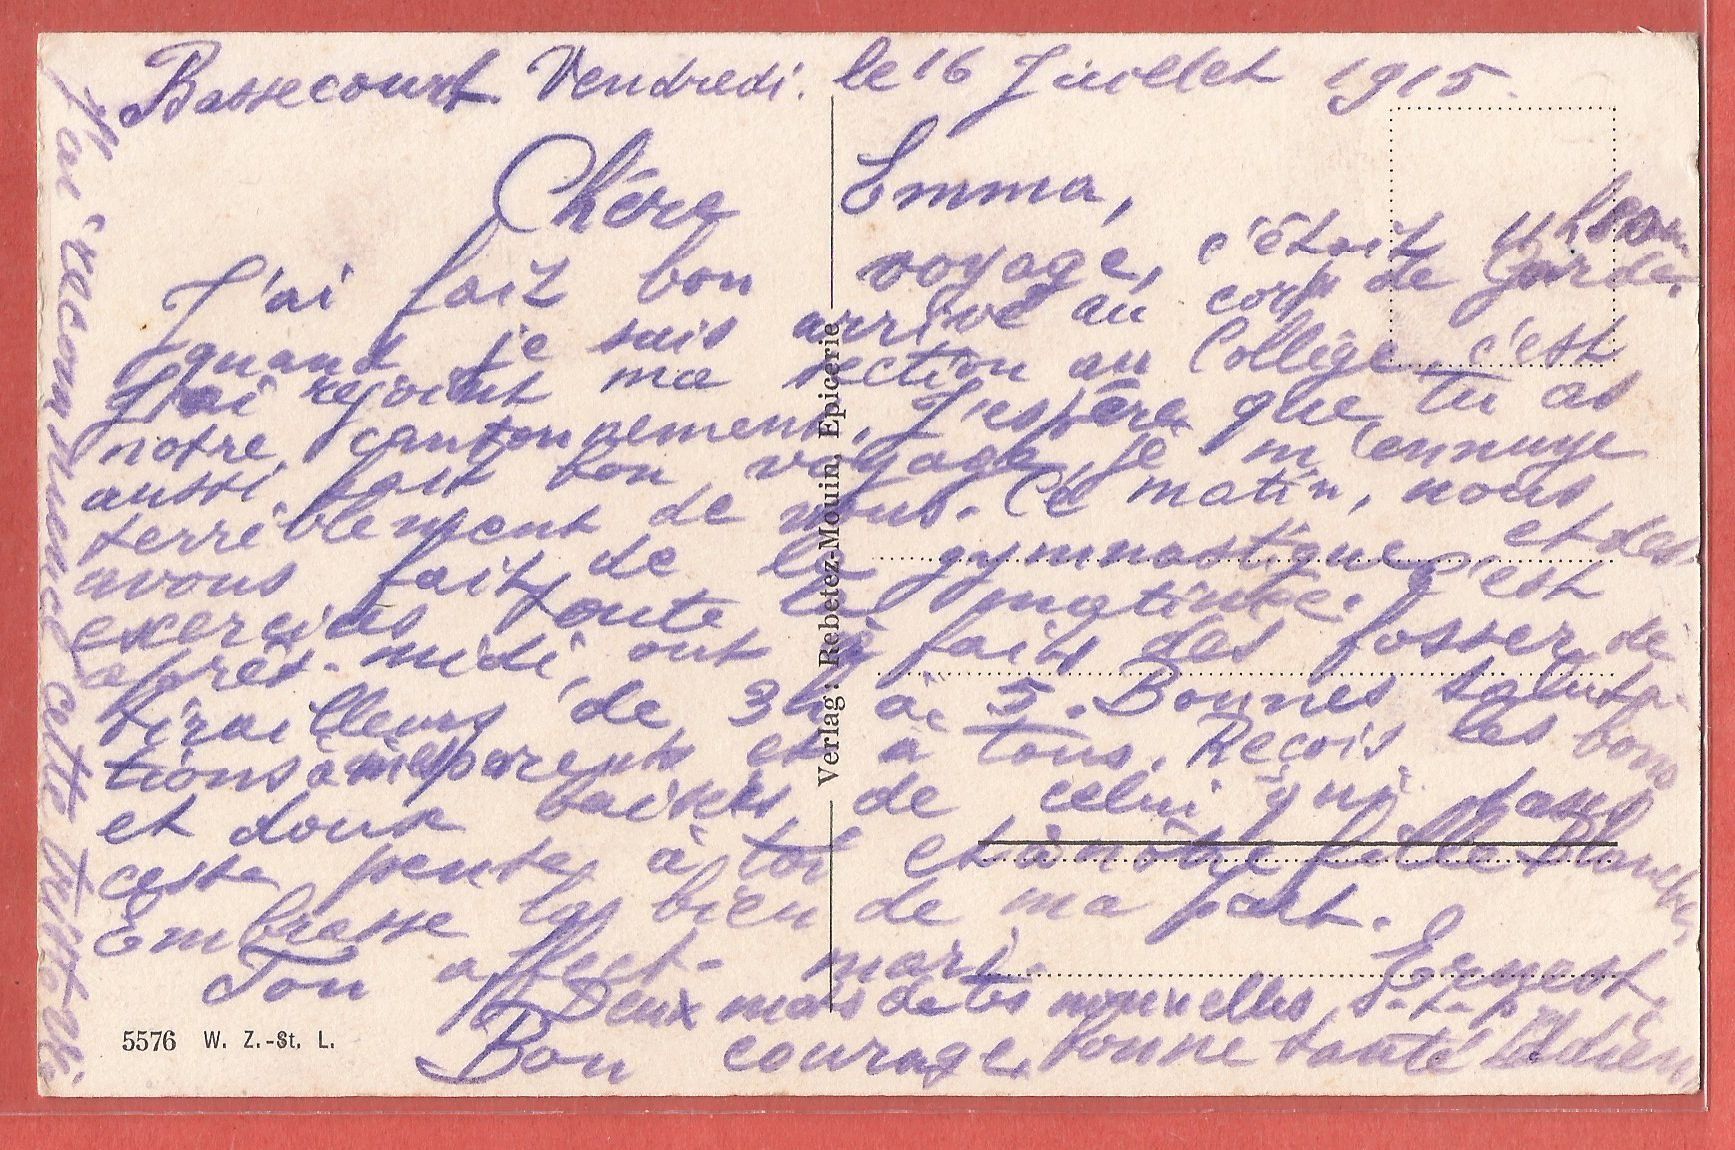 Bassecourt Vendredi. le 16 Juillet 1915.
Chère Emma,
J'ai fait bon voyage, c'était 11 heu.
quand je suis arrivé au corp de Garde.
J'ai rejoint ma section au Collège c'est
notre cantonnement. J'espère que tu as
aussi fait bon voyage, je m'ennuye
terriblement de vous. Ce matin, nous
avons fait de la gymnastique et des
exercices toute la matinée. c'est
après-midi, ont à faits des fosser de
tirailleurs de 3h à 5. Bonnes saluta-
tions à mes parents et à tous. Reçois les bons
et doux baisers de celui qui sans
cesse pense à toi et à nôtre fille Blanche.
Embrasse las bien de ma part.
Ton affect- mari- Ernest.
Deux mots de tes nouvelles s-t-p
Bon courage, bonne santé Adieu
J'ai recommencé cette
5576 W. Z.-St. L.
Verlag: Rebetez-Mouin, Epicerie